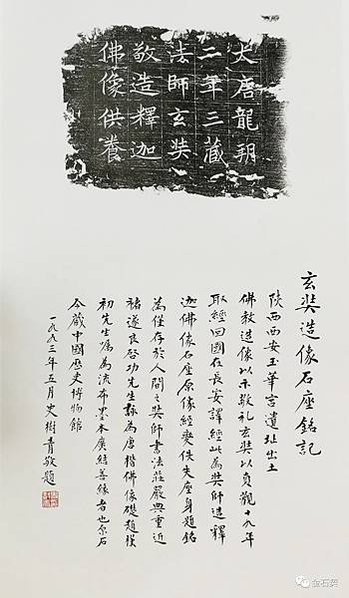 大唐龍朔
二年三藏
法師玄奘
敬造釋迦
佛像供養
玄奘造像石座銘記
陝西西安玉華宮遺址出土
佛教造像以示敬礼玄奘以貞觀十九年
取經回國在長安譯經此為奘師造釋
迦佛像石座原像經變佚失座身題銘
為僅存於人間之奘師書法莊嚴典重近
褚遂良啓功先生為唐楷佛像礎題樸
初先生嘱為流布墨本廣結善緣者也尔石
今藏中國歷史博物館
一九九三年五月史樹青敬題
金石契